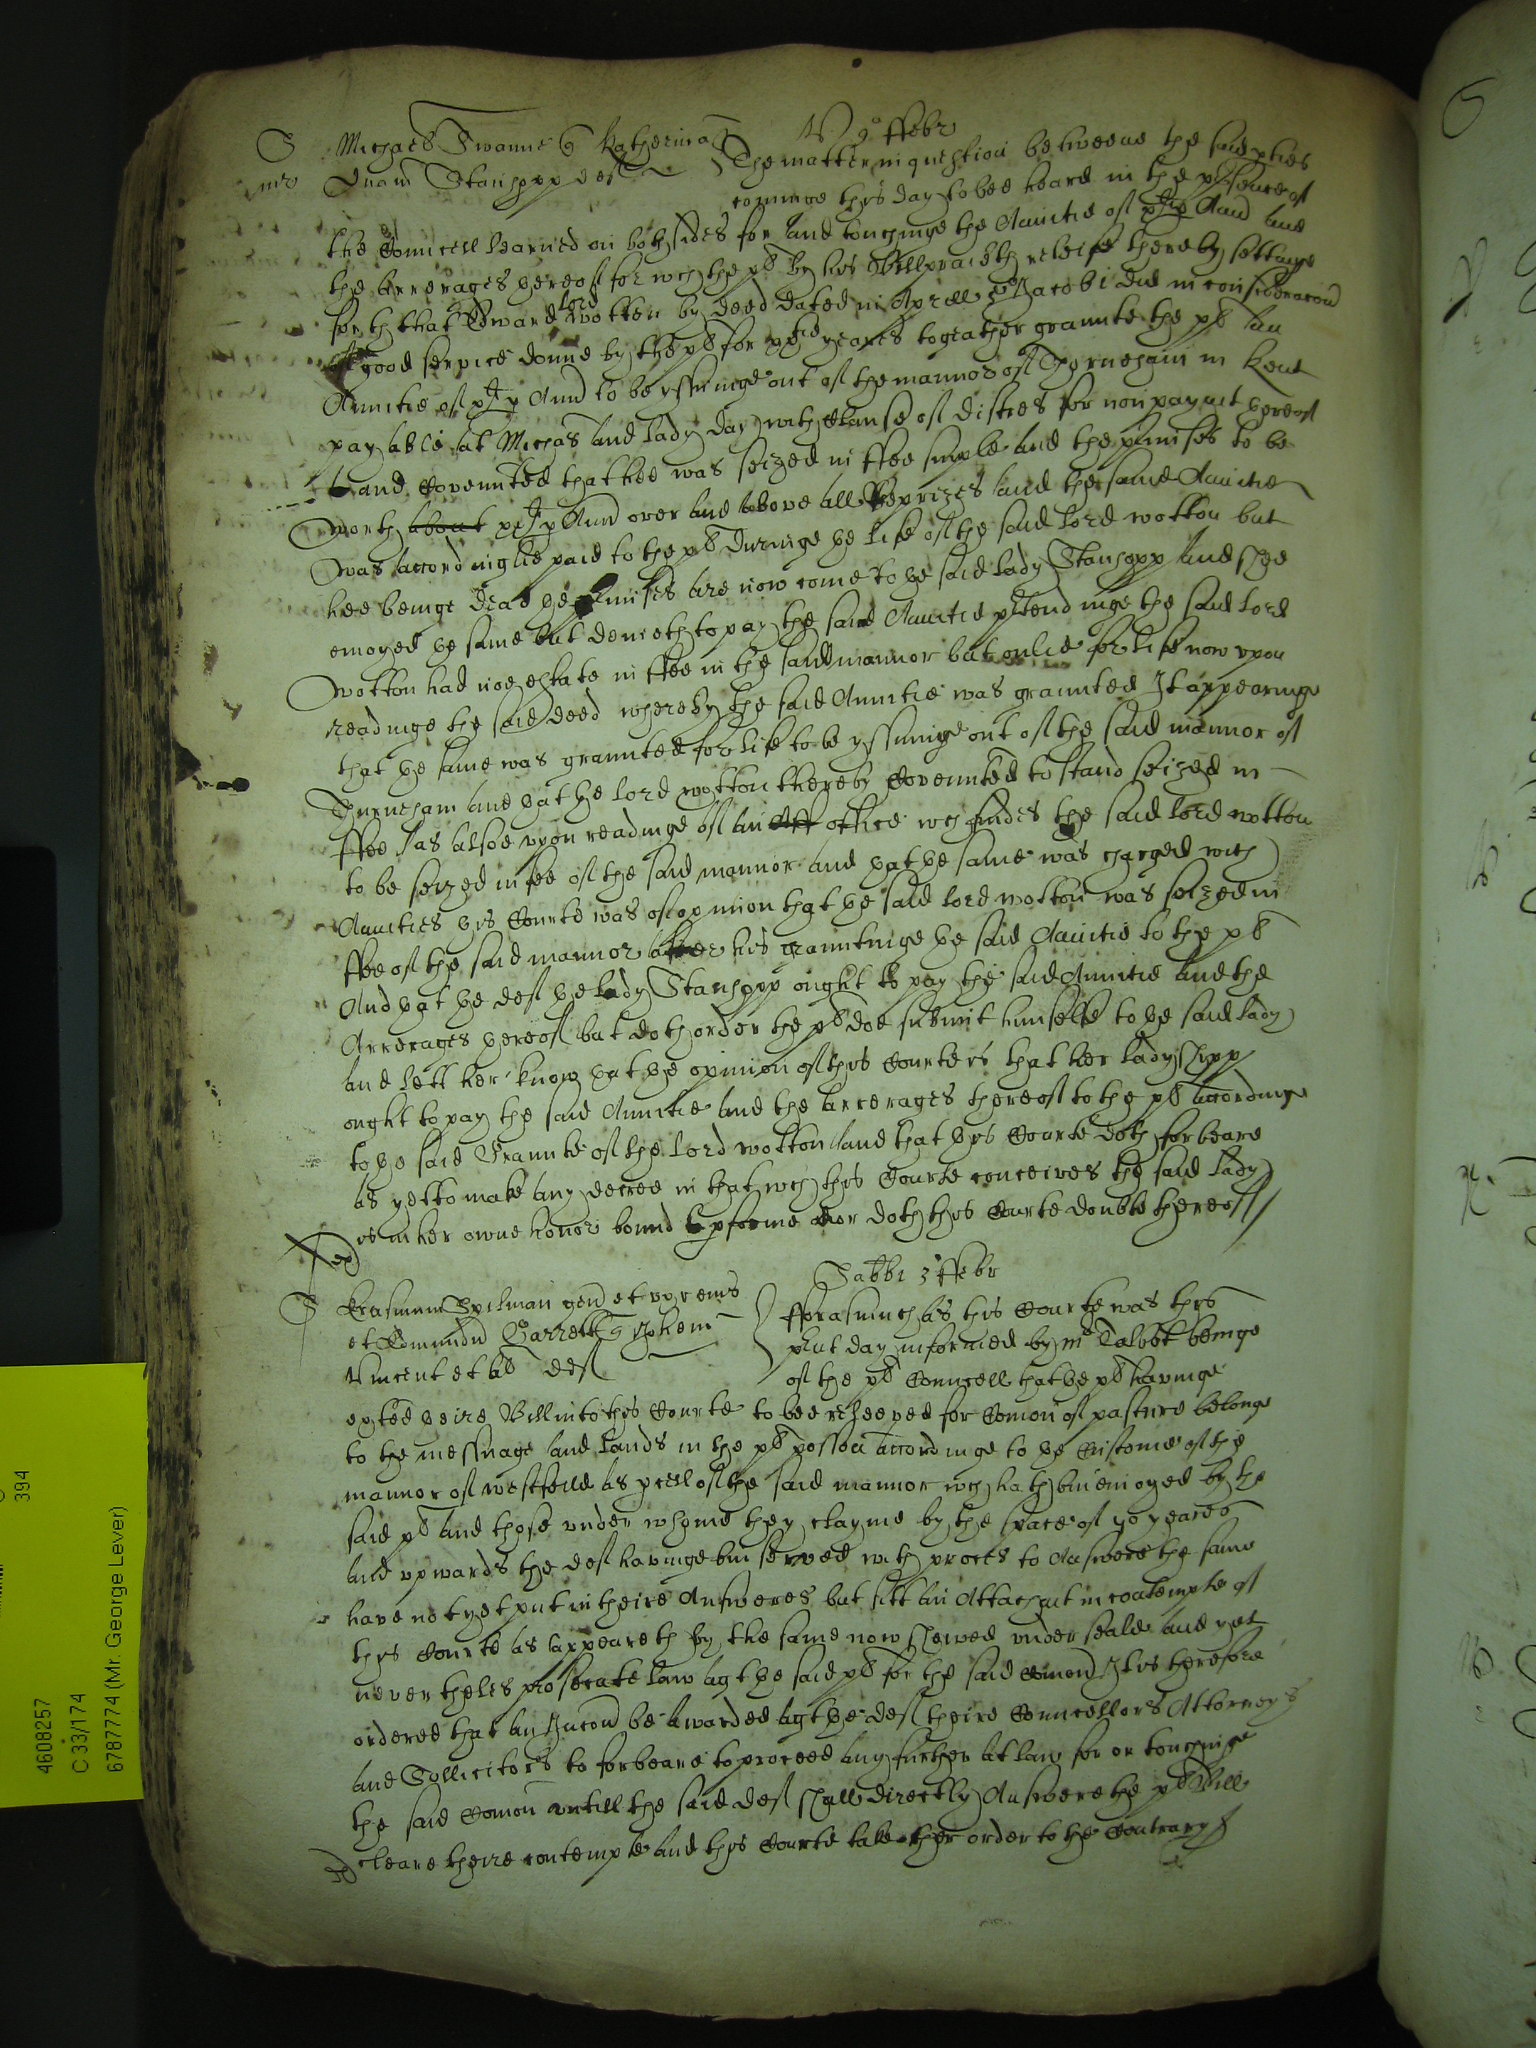 V 9° ffebr
S Michaes Swanne q Katherina
mr Dnam Stanhopp def
The matter in question betweene the said pties
cominge this day to bee heard in the psence of
the Councell Learned on both sides for and touchinge the Anuitie of p Ann and
the Arrerages hereof for wch the pl by his Bill praieth releife thereby settinge
forth that Edward lord Wotten by deed dated in Aprill Jacobi did in consideracon
of good service donne by the pl for yeares togeather graunte the pl an
Anuitie of p Ann to be yssuinge out of the mannor of Thorneham in Kent
payable at Michas and Lady day with Clause of distres for non paymt hereof
and Covennted that hee was seized in ffee simple and the pmises to be
worth about p Ann over and above all Reprizes and the same Anuitie
was accordinglie paid to the pl duringe ye life of the said Lord wotton but
hee beinge dead ye pmises are now come to ye said Lady Stanhopp and shee
enioyed ye same but denieth to pay the said Anuitie ptendinge the said Lord
wotton had noe estate in ffee in the said mannor but onlie for life now vpon
readinge the said deed whereby the said Anuitie was graunted It appearinge
that ye same was graunted for life to be yssuinge out of the said mannor of
Thurneham and yat ye Lord wotton thereby Covennted to stand seized in
ffee As alsoe vpon readinge of an Off office wch findes the said Lord wotton
to be seized in fee of the said mannor and yat ye same was charged with
Anuities this Courte was of opinion that ye said Lord wotton was seized in
ffee of the said mannor his grauntinge ye said Anuitie to the pl
And yat ye def ye Lady Stanhopp ought to pay the said Anuitie and the
Arrerages hereof but doth order the pl doe submit himselfe to ye said Lady
and lett her know yat ye opinion of this Courte is that her Ladyshipp
ought to pay the said Anuitie and the arrerages thereof to the pl accordinge
to ye said Graunte of the Lord wotton and that this Courte doth forbeare
as yet to make any decree in that wch this Courte conceives the said Lady
is in her owne honor bound to pforme nor doth this Courte double thereof
Sabbi 3 ffebr
S Erasmum Spilman gen et vx eius
et Edmundu Garrett q Johem
Vincent et al def
fforasmuch as this Courte was this
pnt day informed by mr Talbot beinge
of the pl Councell that ye pl havinge
exted theire Bill into this Courte to bee releeved for Comon of pasture belonge
to the messuage and lands in the pl possion accordinge to ye Custome of the
mannor of westfeild as pcell of the said mannor wch hath bin enioyed by the
said pl and those vnder whome they clayme by the space of 40 yeares
and vpwards the def havinge bin served with proces to Answere the same
have not yet put in theire Answeres but sitt an Attachmt in contempte of
this Courte as appeareth by the same now shewed vnder seale and yet
neverthelesse prosecute law agt ye said pl for the said Comon It is therefore
ordered that an Iniuncon be awarded agt the def theire Councellors Attorneys
and Sollicitors to forbeare to proceed any further at law for or touchinge
the said Comon vntill the said def shall directly Answere the pl Bill
cleare theire contempte and this Courte take other order to the Contrary
394
4608257
C 33/174
6787774 (Mr. George Lever)